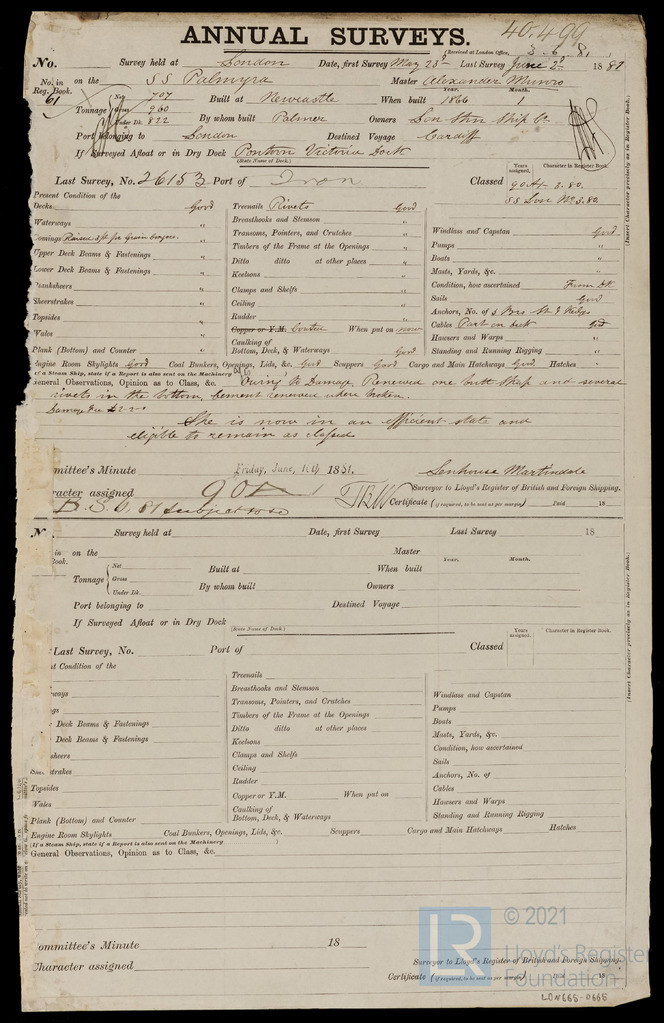 ANNUAL SURVEYS.
40,499
(Received at London Office, 3-6-81
No. Survey held at London Date, first Survey May 23d Last Survey June 2d 1881
No. in Reg. Book. 61 on the SS Palmyra Master Alexander Munro
Tonnage Net 707 Gross 960 Under Dk. 822 Built at Newcastle When built Year. 1866 Month. 1
By whom built Palmer Owners Lon Stm Ship Co.
Port belonging to London Destined Voyage Cardiff
If Surveyed Afloat or in Dry Dock Pontoon Victoria Dock
(State Name of Dock.)
Years assigned. Character in Register Book.
Last Survey, No. 26153 Port of Iron Classed 90A1 3.80.
SS Lon No 3.80.
(Insert Character precisely as in Register Book.)
Present Condition of the
Decks Good
Waterways "
Comings Raised 3ft for grain cargoes. "
Upper Deck Beams & Fastenings "
Lower Deck Beams & Fastenings "
Planksheers "
Sheerstrakes "
Topsides "
Wales "
Plank (Bottom) and Counter "
Treenails Rivets Good
Breasthooks and Stemson "
Transoms, Pointers, and Crutches "
Timbers of the Frame at the Openings "
Ditto ditto at other places "
Keelsons "
Clamps and Shelfs "
Ceiling "
Rudder "
Copper or Y.M. Coated When put on now
Caulking of Bottom, Deck, & Waterways Good
Windlass and Capstan Good
Pumps "
Boats "
Masts, Yards, &c. "
Condition, how ascertained From Dk.
Sails Good
Anchors, No. of 3 Brs St & Kedges
Cables Part on deck Good
Hawsers and Warps "
Standing and Running Rigging "
Engine Room Skylights Good Coal Bunkers, Openings, Lids, &c. Good Scuppers Good Cargo and Main Hatchways Good. Hatches "
(If a Steam Ship, state if a Report is also sent on the Machinery
General Observations, Opinion as to Class, &c. Owing to Damage, Renewed one butt strap and several
rivets in the bottom, cement renewed where broken.
Damage Fee £2-2-0
She is now in an efficient state and
eligible to remain as classed
Committee's Minute Friday, June, 10th 1881. Senhouse Martindale
Surveyor to Lloyd's Register of British and Foreign Shipping.
Character assigned 90A1
TBW Certificate (if required, to be sent as per margin) Paid 18
B.S. 6 81 subject to SS
No. Survey held at Date, first Survey Last Survey 18
in Book. on the Master
Tonnage Net Gross Under Dk. Built at When built Year. Month.
By whom built Owners
Port belonging to Destined Voyage
If Surveyed Afloat or in Dry Dock
(State Name of Dock.)
Years assigned. Character in Register Book.
Last Survey, No. Port of Classed
(Insert Character precisely as in Register Book.)
t Condition of the
ways
gs
Deck Beams & Fastenings
Deck Beams & Fastenings
sheers
Sheerstrakes
Topsides
Wales
Plank (Bottom) and Counter
Treenails
Breasthooks and Stemson
Transoms, Pointers, and Crutches
Timbers of the Frame at the Openings
Ditto ditto at other places
Keelsons
Clamps and Shelfs
Ceiling
Rudder
Copper or Y.M. When put on
Caulking of Bottom, Deck, & Waterways
Windlass and Capstan
Pumps
Boats
Masts, Yards, &c.
Condition, how ascertained
Sails
Anchors, No. of
Cables
Hawsers and Warps
Standing and Running Rigging
Engine Room Skylights Coal Bunkers, Openings, Lids, &c. Scuppers Cargo and Main Hatchways Hatches
(If a Steam Ship, state if a Report is also sent on the Machinery )
General Observations, Opinion as to Class, &c.
ommittee's Minute 18
Surveyor to Lloyd's Register of British and Foreign Shipping.
Character assigned
Certificate (if required, to be sent as per margin) Paid 18
LR © 2021
Lloyd's Register
Foundation
LON668-0668